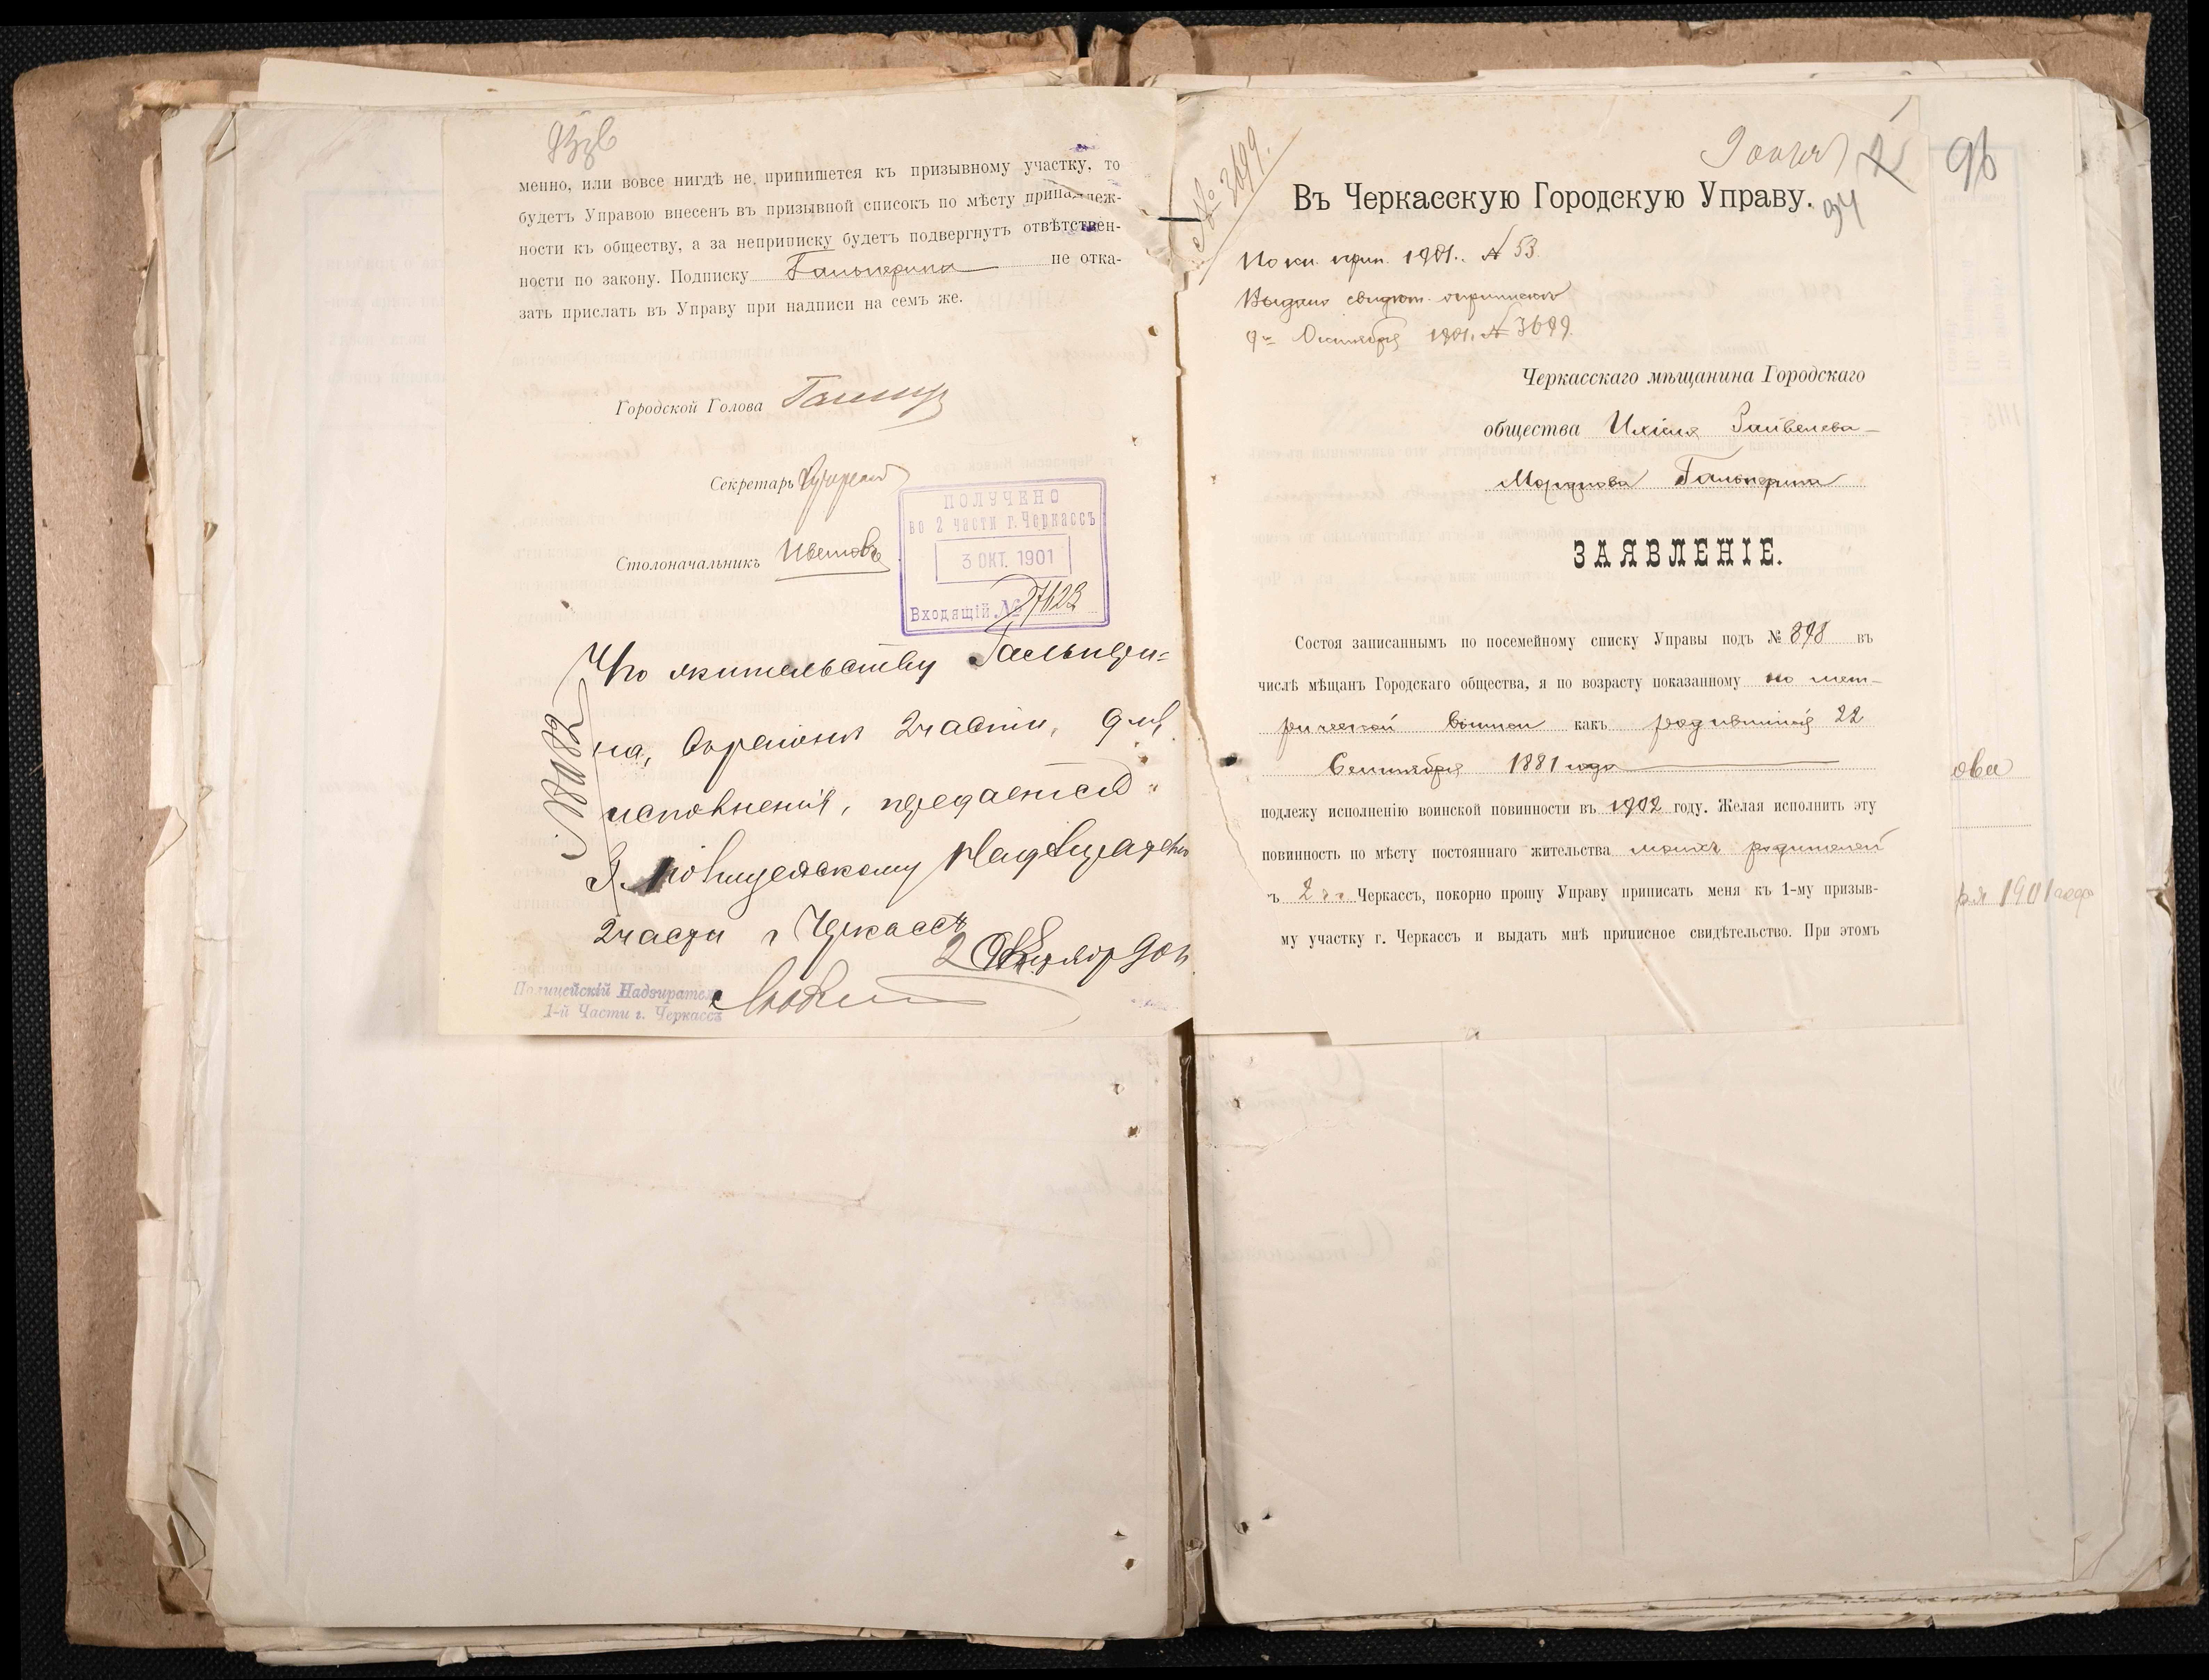 менно, или вовсе нигдѣ не припишется къ призывному участку, то
будетъ Управою внесенъ въ призывной списокъ по мѣсту принадлеж-
ности къ обществу, а за неприписку будетъ подвергнутъ отвѣтствен-
ности по закону. Подписку Гальперина не отка-
зать прислать въ Управу при надписи на семъ же.
Городской Голова
Секретарь
Столоначальникъ
ПОЛУЧЕНО
во 2 части г. Черкассъ
3 ОКТ. 1901
Входящій №
По жительству Гальпери=
на, въ районѣ 2 части, для
исполненія, передается
Г. Полицейскому Надзирателю
2 части г Черкассъ
2 Октября 901
Полицейскій Надзиратель
1-й Части г. Черкассъ
№ 3699.
96
94
Въ Черкасскую Городскую Управу.
По кн. прип. 1901. № 53
Выдано свидѣт. о припискѣ
9го Октября 1901. № 3699.
Черкасскаго мѣщанина Городскаго
общества Ихіила
Мордкова Гальперина
ЗАЯВЛЕНІЕ.
Состоя записаннымъ по посемейному списку Управы подъ № 898 въ
числѣ мѣщанъ Городскаго общества, я по возрасту показанному по мет-
рической какъ родившійся 22
Сентября 1881 года
подлежу исполненію воинской повинности въ 1902 году. Желая исполнить эту
повинность по мѣсту постояннаго жительства моихъ родителей
ъ 2 Черкассъ, покорно прошу Управу приписать меня къ 1-му призыв-
му участку г. Черкассъ и выдать мнѣ приписное свидѣтельство. При этомъ
ова
ря 1901 года